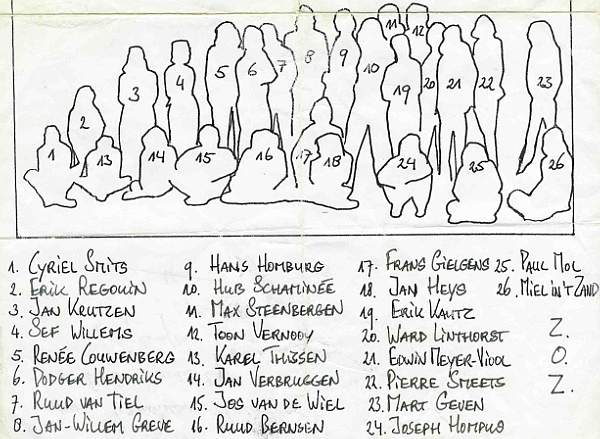 11 12
3 4 5 6 7 8 9 10 19 20 21 22 23
2
1 13 14 15 16 17 18 24 25 26
1. Cyriel Smits
2. Erik Regouin
3. Jan Krutzen
4. Sef Willems
5. Renée Couwenberg
6. Dodger Hendriks
7. Ruud van Tiel
8. Jan-Willem Greve
9. Hans Homburg
10. Hub Schaminée
11. Max Steenbergen
12. Toon Vernooy
13. Karel Thissen
14. Jan Verbruggen
15. Jos van de Wiel
16. Ruud Bernsen
17. Frans Gielgens
18. Jan Heys
19. Erik Kautz
20. Ward Linthorst
21. Edwin Meyer-Viool
22. Pierre Smeets
23. Mart Geven
24. Joseph Hompus
25. Paul Mol
26. Miel in't Zand
Z.
O.
Z.